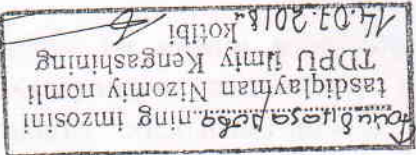 ning imzosini
tasdiqlayman Nizomiy nomli
TDPU Ilmiy Kengashining
kotibi
14.07.2018